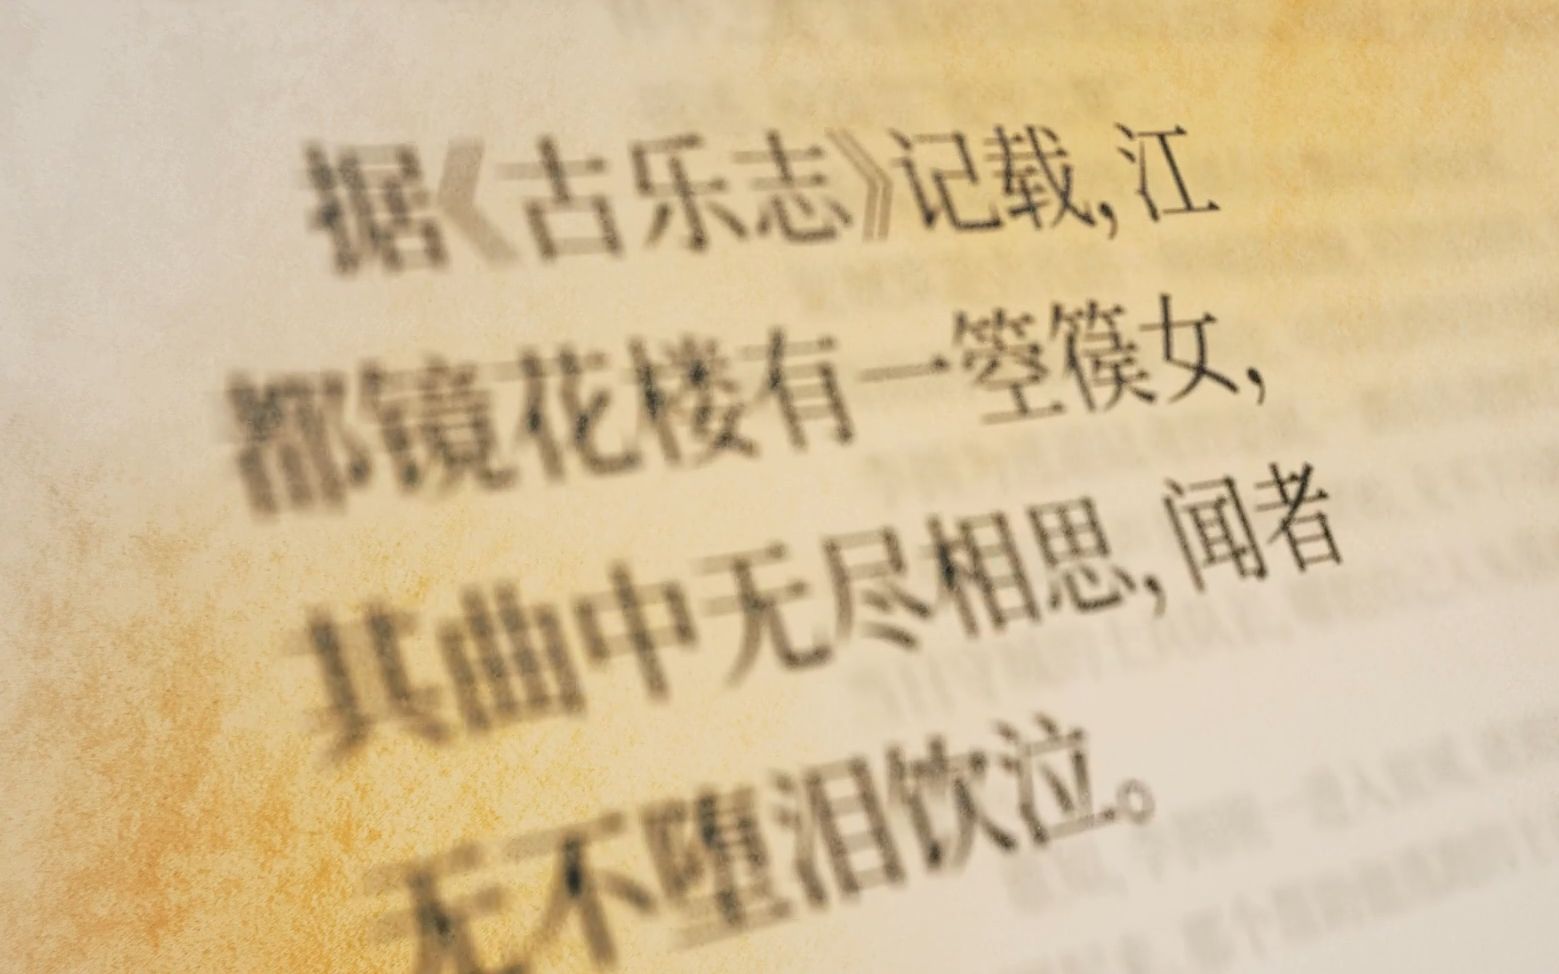 据《古乐志》记载,江
都镜花楼有一箜篌女,
其曲中无尽相思,闻者
无不堕泪饮泣。